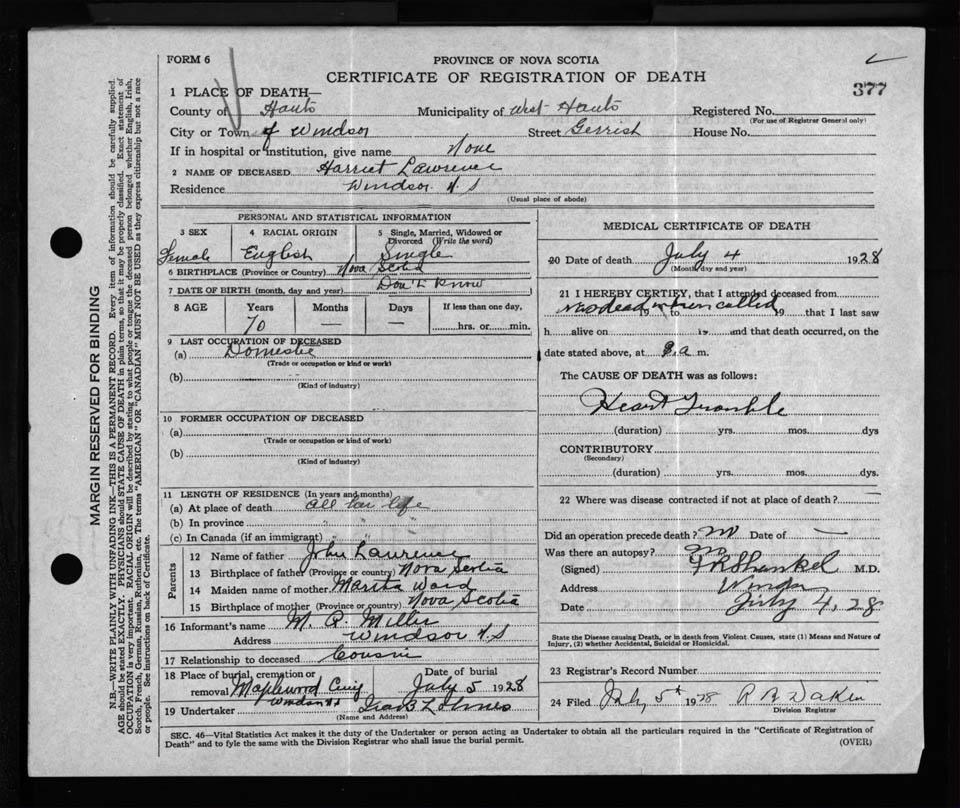 FORM 6
PROVINCE OF NOVA SCOTIA
CERTIFICATE OF REGISTRATION OF DEATH
377
1 PLACE OF DEATH—
County of Hants Municipality of West Hants Registered No.
(For use of Registrar General only)
City or Town of Windsor Street Gerrish House No.
If in hospital or institution, give name None
2 NAME OF DECEASED Harriet Lawrence
Residence Windsor N.S
(Usual place of abode)
PERSONAL AND STATISTICAL INFORMATION
3 SEX 4 RACIAL ORIGIN 5 Single, Married, Widowed or Divorced (Write the word)
Female English Single
6 BIRTHPLACE (Province or Country) Nova Scotia
7 DATE OF BIRTH (month, day and year) Don't Know
8 AGE Years Months Days If less than one day,
70 — — hrs. or min.
9 LAST OCCUPATION OF DECEASED
(a) Domestic
(Trade or occupation or kind of work)
(b)
(Kind of industry)
10 FORMER OCCUPATION OF DECEASED
(a)
(Trade or occupation or kind of work)
(b)
(Kind of industry)
11 LENGTH OF RESIDENCE (In years and months)
(a) At place of death all her life
(b) In province " "
(c) In Canada (if an immigrant)
Parents
12 Name of father John Lawrence
13 Birthplace of father (Province or country) Nova Scotia
14 Maiden name of mother Ward
15 Birthplace of mother (Province or country) Nova Scotia
16 Informant's name M. Miller
Address Windsor N.S
17 Relationship to deceased Cousin
18 Place of burial, cremation or removal Maplewood Windsor Date of burial July 5 1928
19 Undertaker
(Name and Address)
MEDICAL CERTIFICATE OF DEATH
20 Date of death July 4 1928
(Month, day and year)
21 I HEREBY CERTIFY, that I attended deceased from
was dead when called 19 to 19 that I last saw
h alive on 19 and that death occurred, on the
date stated above, at a m.
The CAUSE OF DEATH was as follows:
Heart Trouble
(duration) yrs. mos. dys
CONTRIBUTORY
(Secondary)
(duration) yrs. mos. dys.
22 Where was disease contracted if not at place of death?
Did an operation precede death? no Date of —
Was there an autopsy? no
(Signed) M.D.
Address Windsor
Date July 4, 28
State the Disease causing Death, or in death from Violent Causes, state (1) Means and Nature of
Injury, (2) whether Accidental, Suicidal or Homicidal.
23 Registrar's Record Number
24 Filed July 5th 1928 R B Dakin
Division Registrar
SEC. 46—Vital Statistics Act makes it the duty of the Undertaker or person acting as Undertaker to obtain all the particulars required in the "Certificate of Registration of
Death" and to fyle the same with the Division Registrar who shall issue the burial permit.
(OVER)
MARGIN RESERVED FOR BINDING
N.B.—WRITE PLAINLY WITH UNFADING INK—THIS IS A PERMANENT RECORD. Every item of information should be carefully supplied.
AGE should be stated EXACTLY. PHYSICIANS should STATE CAUSE OF DEATH in plain terms, so that it may be properly classified. Exact statement of
OCCUPATION is very important. RACIAL ORIGIN will be described by stating to what people or tongue the deceased person belonged whether English, Irish,
Scotch, French, German, Russian, Ruthenian, etc. The terms "AMERICAN" or "CANADIAN" MUST NOT BE USED as they express citizenship but not a race
or people. See instructions on back of Certificate.